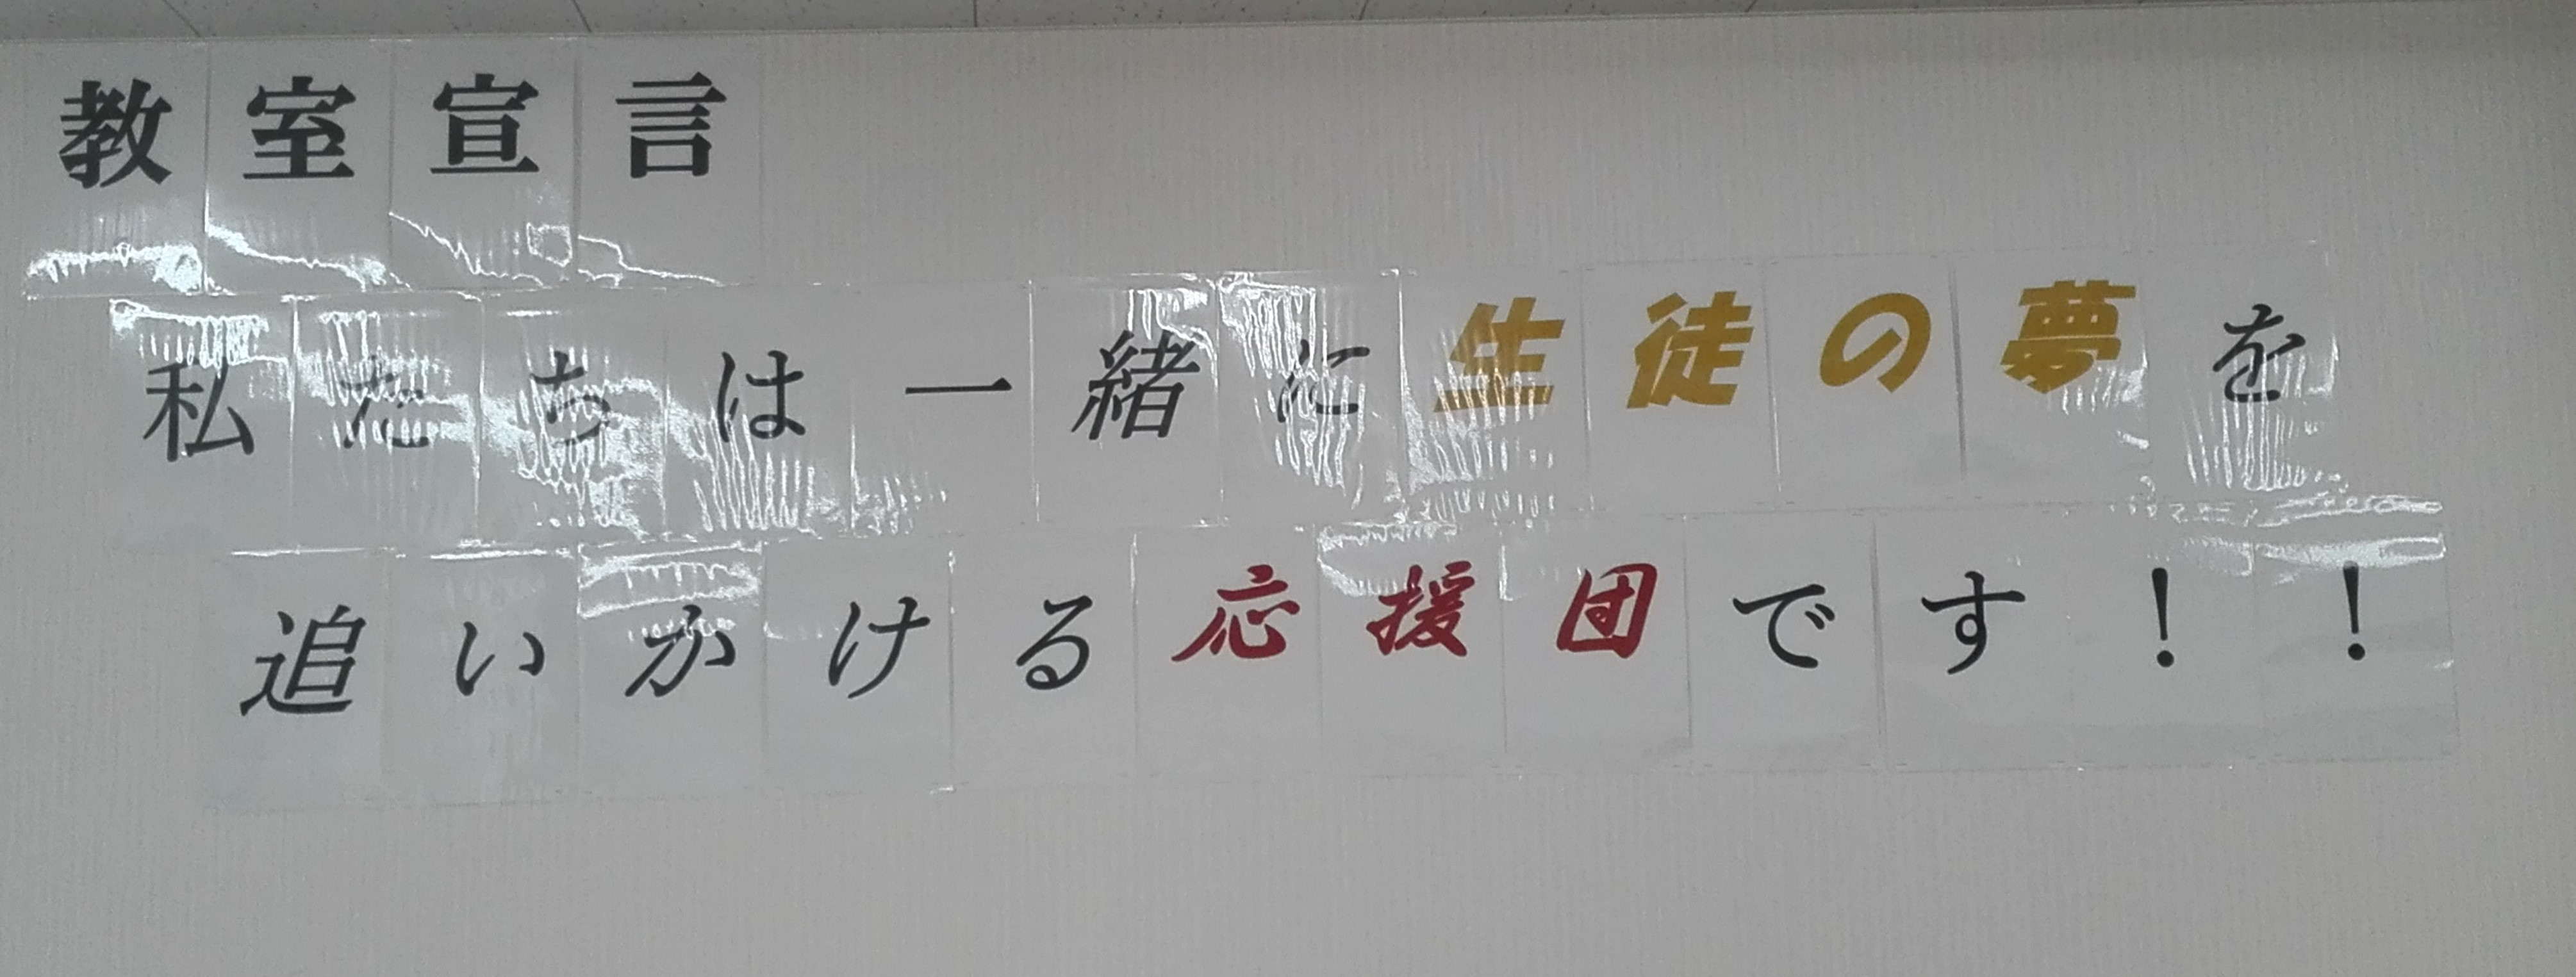 教室宣言
私たちは一緒に生徒の夢を
追いかける応援団です！！